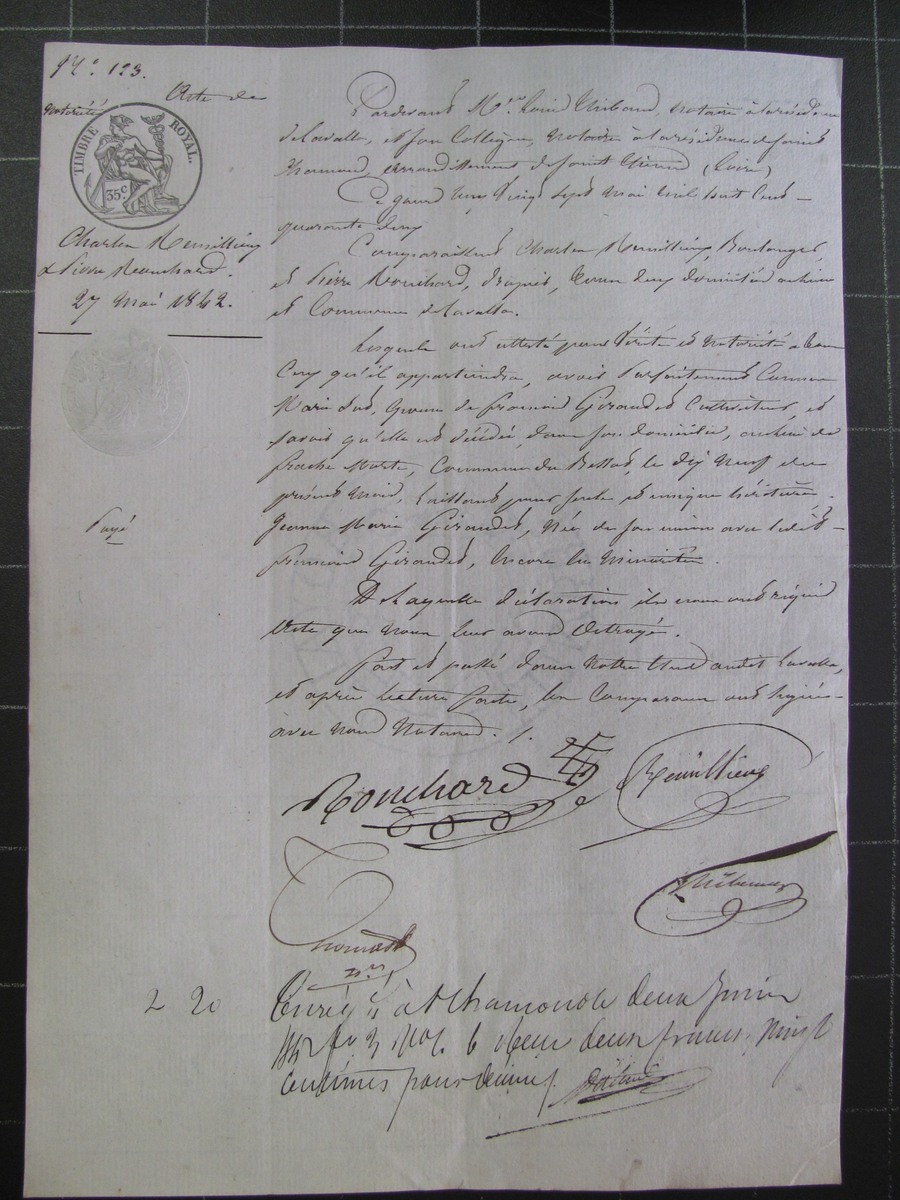 N.° 123.
Acte de
Notoriété
TIMBRE ROYAL.
35 C
Charles Remillieux
& Pierre Rouchard.
27 Mai 1842.
Payé
Pardevant M.e Louis Thibaud, notaire à la résidence
de Lavalla, et son Collègue, notaire à la résidence de saint
Chamond, arrondissement de saint Etienne (Loire)
Ce jourd'hui Vingt Sept Mai mil huit Cent
quarante deux
Comparaissent Charles Remillieux, Boulanger,
et Pierre Rouchard, tous deux domiciliés au lieu
et Commune de Lavalla.
Lesquels ont attesté pour Vérité et Notoriété à tous
Ceux qu'il appartiendra, avoir Parfaitement Connu
Marie épouse de François Giraudet Cultivateur, et
savoir qu'elle est décédée, dans son domicile, au lieu de
Commune du Bessat, le dix Neuf du
présent Mois, laissant pour seule et unique héritière
Jeanne Marie Giraudet, Née de son union avec ledit
François Giraudet, Encore en Minorité.
De laquelle déclaration ils nous ont requis
Acte que Nous leur avons Octroyé.
Fait et passé dans Notre Etude audit Lavalla,
et après Lecture faite, les Comparans ont signé
avec Nous Notaires. /.
Rouchard
Remillieux
Thibaud
n.re
2 20
Enreg.é à St Chamond le deux Juin
1842 f.o 6 Reçu deux francs Vingt
Centimes pour décime.